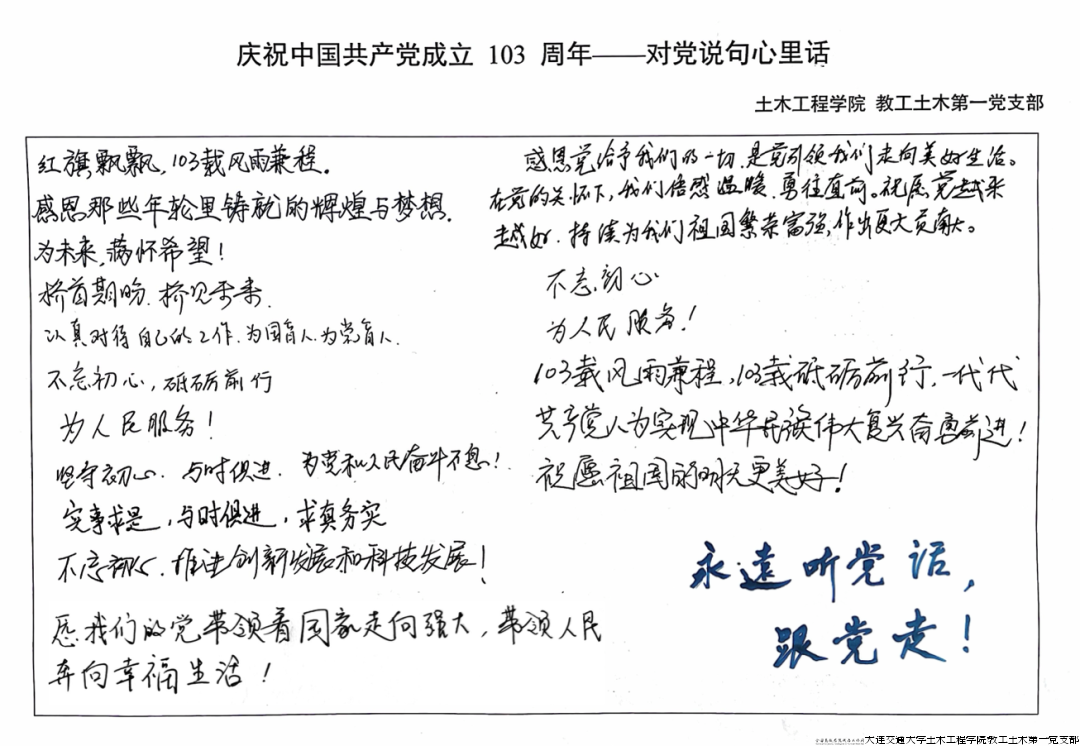 庆祝中国共产党成立 103 周年——对党说句心里话
土木工程学院 教工土木第一党支部
红旗飘飘,103载风雨兼程.
感恩那些年轮里铸就的辉煌与梦想.
为未来,满怀希望!
桥首期盼.桥见未来.
认真对待自己的工作.为国育人.为党育人.
不忘初心,砥砺前行
为人民服务!
坚守初心、与时俱进.为党和人民奋斗不息!
实事求是,与时俱进,求真务实
不忘初心.推进创新发展和科技发展!
愿我们的党带领着国家走向强大,带领人民
奔向幸福生活!
感恩党给予我们的一切.是党引领我们走向美好生活。
在党的关怀下,我们倍感温暖、勇往直前。祝愿党越来
越好.持续为我们祖国繁荣富强,作出更大贡献。
不忘初心
为人民服务!
103载风雨兼程,103载砥砺前行,一代代
共产党人为实现中华民族伟大复兴奋勇前进!
祝愿祖国的明天更美好!
永远听党话,
跟党走!
大连交通大学土木工程学院教工土木第一党支部